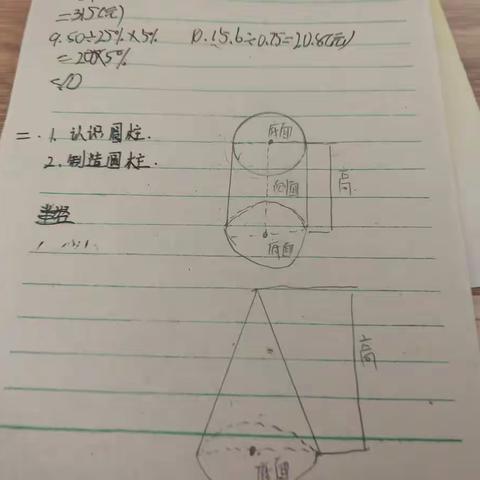 =315(元)
9.50÷25%×5% 10.15.6÷0.75=20.8(元)
=200×5%
=10
二.1.认识圆柱.
2.制造圆柱.
底面
侧面
高
底面
高
底面